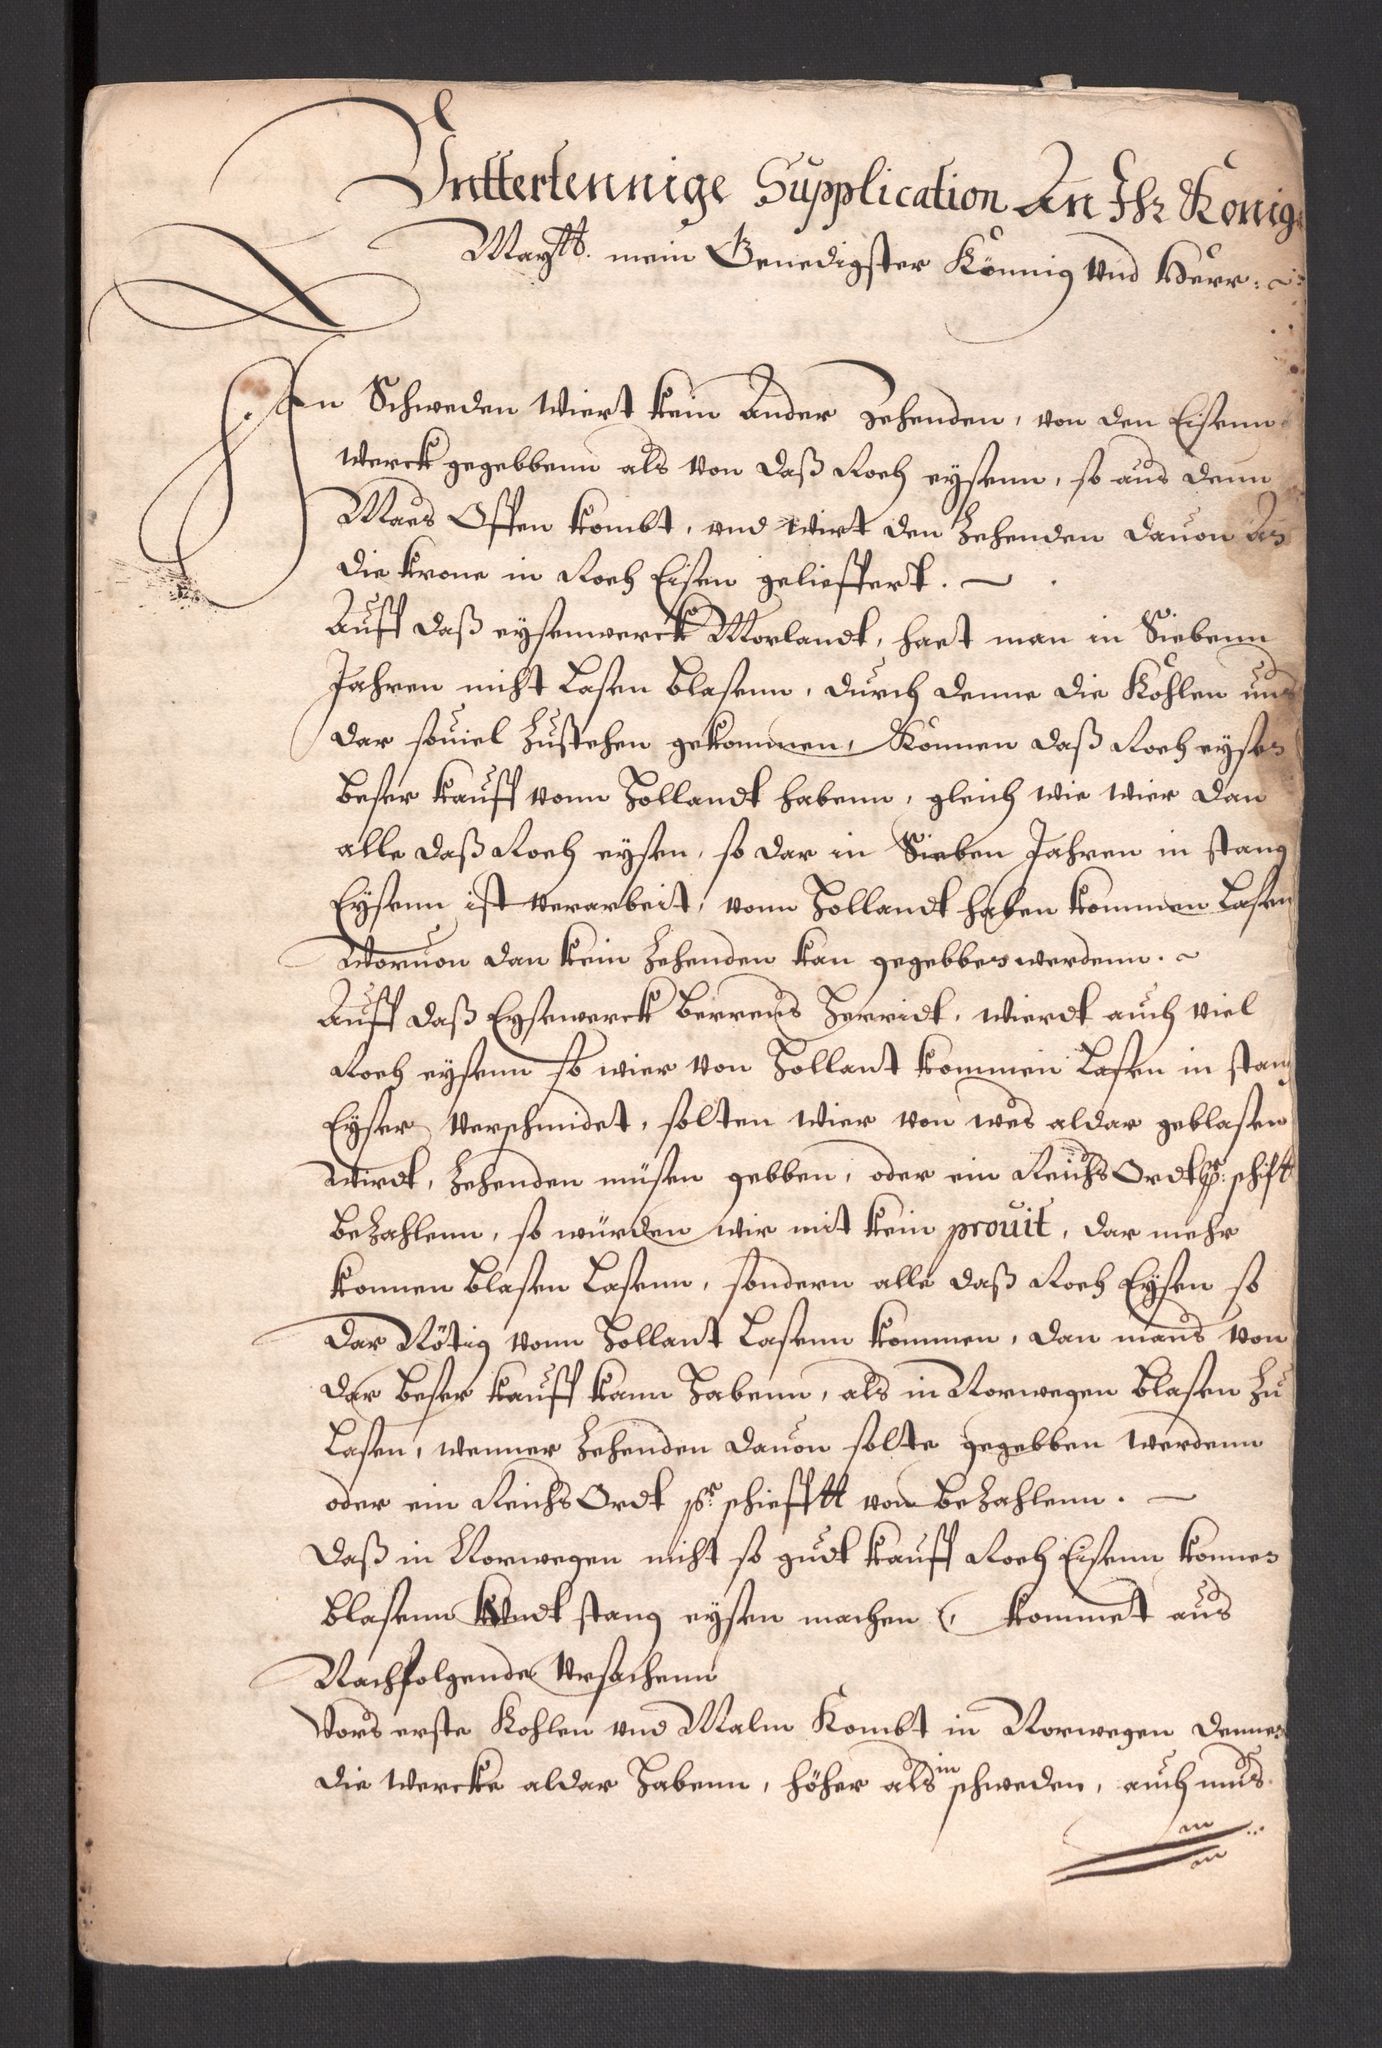 Unttertennige Supplication An Ihr König
Maytt. mein Genedigster Könnig vnd Herr:
In Schweden wiert kein Ander zehenden, von den Eisenn
werck gegebbenn als von daß Roch eysenn, so aus denn
Maes Offen kombt, vnd wirt den Zehenden dauon An
die krone in Roch Eisen gelieffert.
Auff daß eysenwerck Morlandt, haet man in Siebenn
Jahren nicht Lasen Blasenn, durch denne die Kohlen uns
dar souiel Zustehen gekommen, Können daß Roch eysen
beser kauff vonn Hollandt habenn, gleich wie wier dan
alle daß Roch eysen, so dar in Sieben Jahren in stang
Eysenn ist verarbeit, vonn Hollandt haben kommen Lasen
Woruon dan kein Zehenden kan gegebben werdenn.
Auff daß Eysewerck Berrens Herridt, wierdt auch viel
Roch eysenn so wier von Hollant kommen Lasen in stang
Eysen verschmidet, solten wier von was aldar geblasen
wirdt, Zehenden müsen gebben, oder ein Reichs Ordt pr. schiftt
beZahlenn, so würden wir mit kein prouit, dar mehr
konnen blasen Lasenn, sondern alle daß Roch Eysen so
dar Nötig vonn Hollant Lasenn kommen, dan mans von
dar beser kauff kann Habenn, als in Norwegen blasen Zu
Lasen, wenner Zehenden dauon solte gegebben werdenn
oder ein Reichs Ordt pr. schiefftt von beZahlenn.
Daß in Norwegen nicht so gudt kauff Roch Eisenn konnen
blasenn vndt stang eysen machen, kommet aus
Nachfolgende Vrsachenn
Vors erste Kohlen vnd Malm Kombt in Norwegen dennen
die wercke aldar Habenn, höher als in schweden, auch mus
an